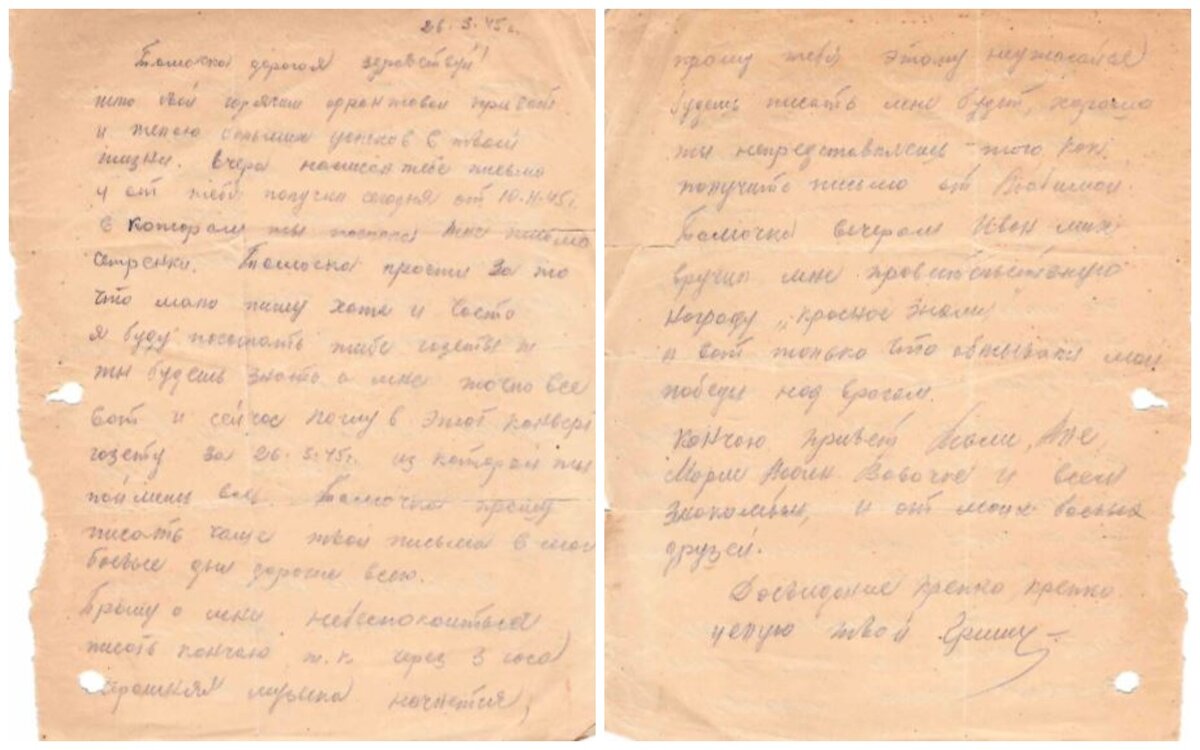 26.3.45г.
Томочка дорогая здравствуй!
шлю свой горячий фронтовой привет
и желаю больших успехов в твоей
жизни. Вчера написал тебе письмо
и от тебя получил сегодня от 10.II.45г.
в котором ты послала мне письмо
сестренки. Томочка прости за то
что мало пишу хотя и часто
я буду посылать тебе газеты и
ты будешь знать о мне точно все
вот и сейчас пошлу в этот конверт
газету за 26.3.45г. из которой ты
поймешь все. Томочка прошу
писать чаще твои письма в мои
боевые дни дороже всего.
Прошу о мне небеспокоиться
писать кончаю т.к. через 3 часа
музыка начнется,
прошу тебя этому неужасайся
будешь писать мне будет хорошо
ты непредставляешь того как
получить письмо от Любимой.
Томочка вечером Иван мих
вручил мне правительственную
награду „красное знамя"
и вот только что обмывали мои
победы над врагом.
Кончаю привет
Марии Вовочке и всем
знакомым, и от моих боевых
друзей.
Досвидание крепко крепко
целую твой Гриша